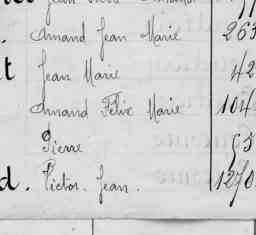 . Armand Jean Marie 263
t Jean Marie 42
Armand Félix Marie 104
Pierre 65
d. Victor. Jean. 1270